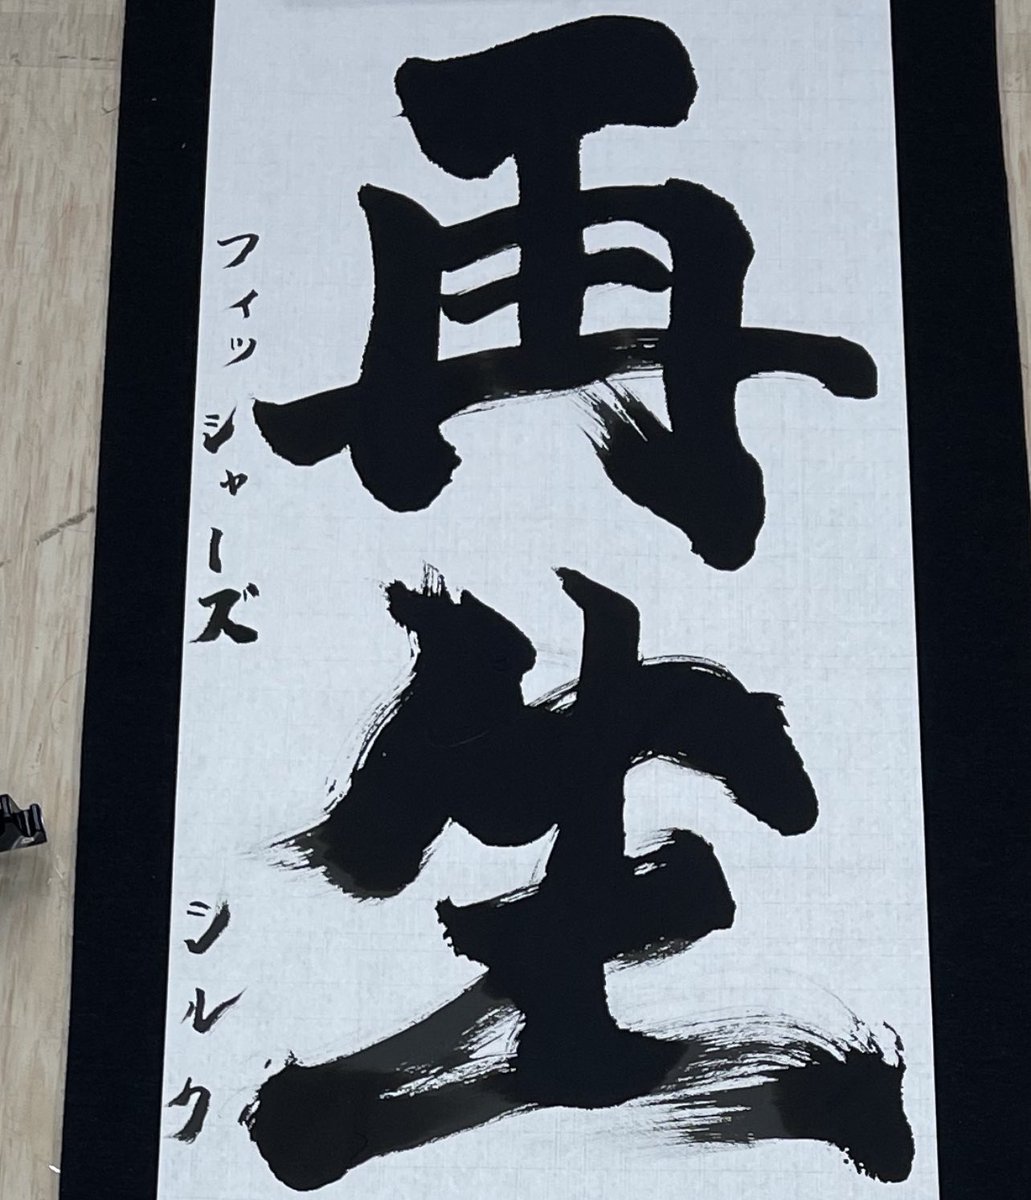 再生
フィッシャーズ シルク